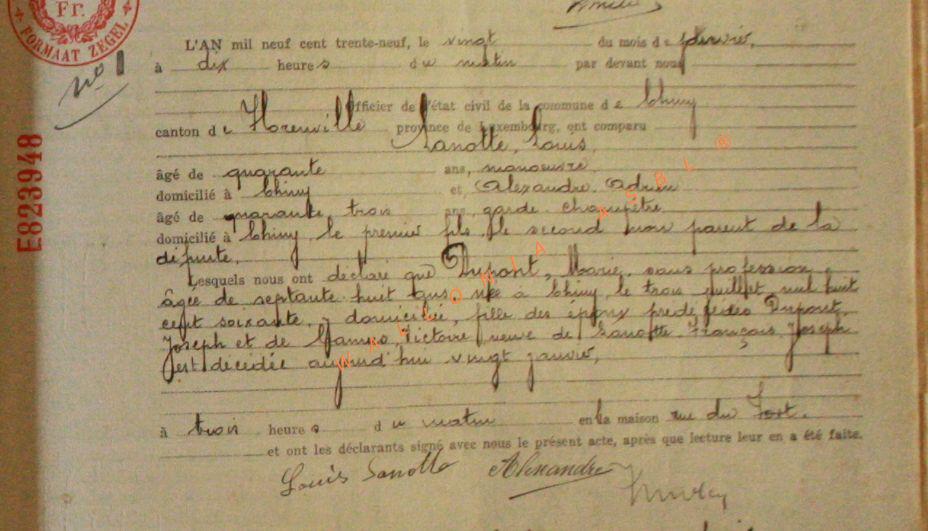 Fr.
FORMAAT ZEGEL
E823948
No 1
L'AN mil neuf cent trente-neuf, le vingt du mois de janvier,
à dix heures du matin par devant nous
Officier de l'état civil de la commune de Chiny
canton de Florenville province de Luxembourg, ont comparu
Lanotte, Louis,
âgé de quarante ans, manoeuvre
domicilié à Chiny et Alexandre Adrien
âgé de quarante trois ans, garde champêtre
domicilié à Chiny, le premier fils, le second non parent de la
défunte.
Lesquels nous ont déclaré que Dupont, Marie, sans profession
âgée de septante huit ans née à Chiny, le trois juillet, mil huit
cent soixante, domiciliée, fille des époux prédécédés Dupont,
Joseph et de Victoire, veuve de Lanotte François Joseph
est décédée aujourd'hui vingt janvier,
à trois heures du matin en la maison rue du Fort.
et ont les déclarants signé avec nous le présent acte, après que lecture leur en a été faite.
Louis Lanotte Alexandre